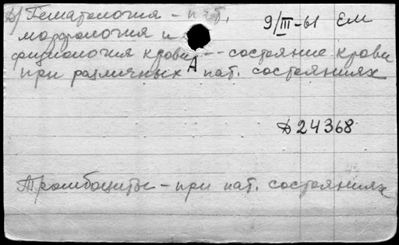 Гематология - пат. 9/III-61 ЕМ
морфология и
физиология крови -- состояние крови
при различных пат. состояниях
А
Д 24368
Тромбоциты - при пат. состояниях